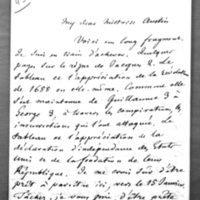 My dear Mistress Austin
Voici un long fragment.
Je suis en train d'achever. Quelques
pages sur le règne de Jacques 2. Le
tableau et l'appréciation de la révolution
de 1688 en elle-même. Comme elle
s'est maintenue de Guillaume 3 à
George 3, à travers les conspirations, les
insurrections qui l'ont attaquée. Le
tableau et l'appréciation de la
déclaration d'indépendance des États
Unis et de la fondation de leur
République. Je me crois sûr d'être
prêt à paraître ici, vers le 15 Janvier.
Tâchez, je vous prie, d'être prête